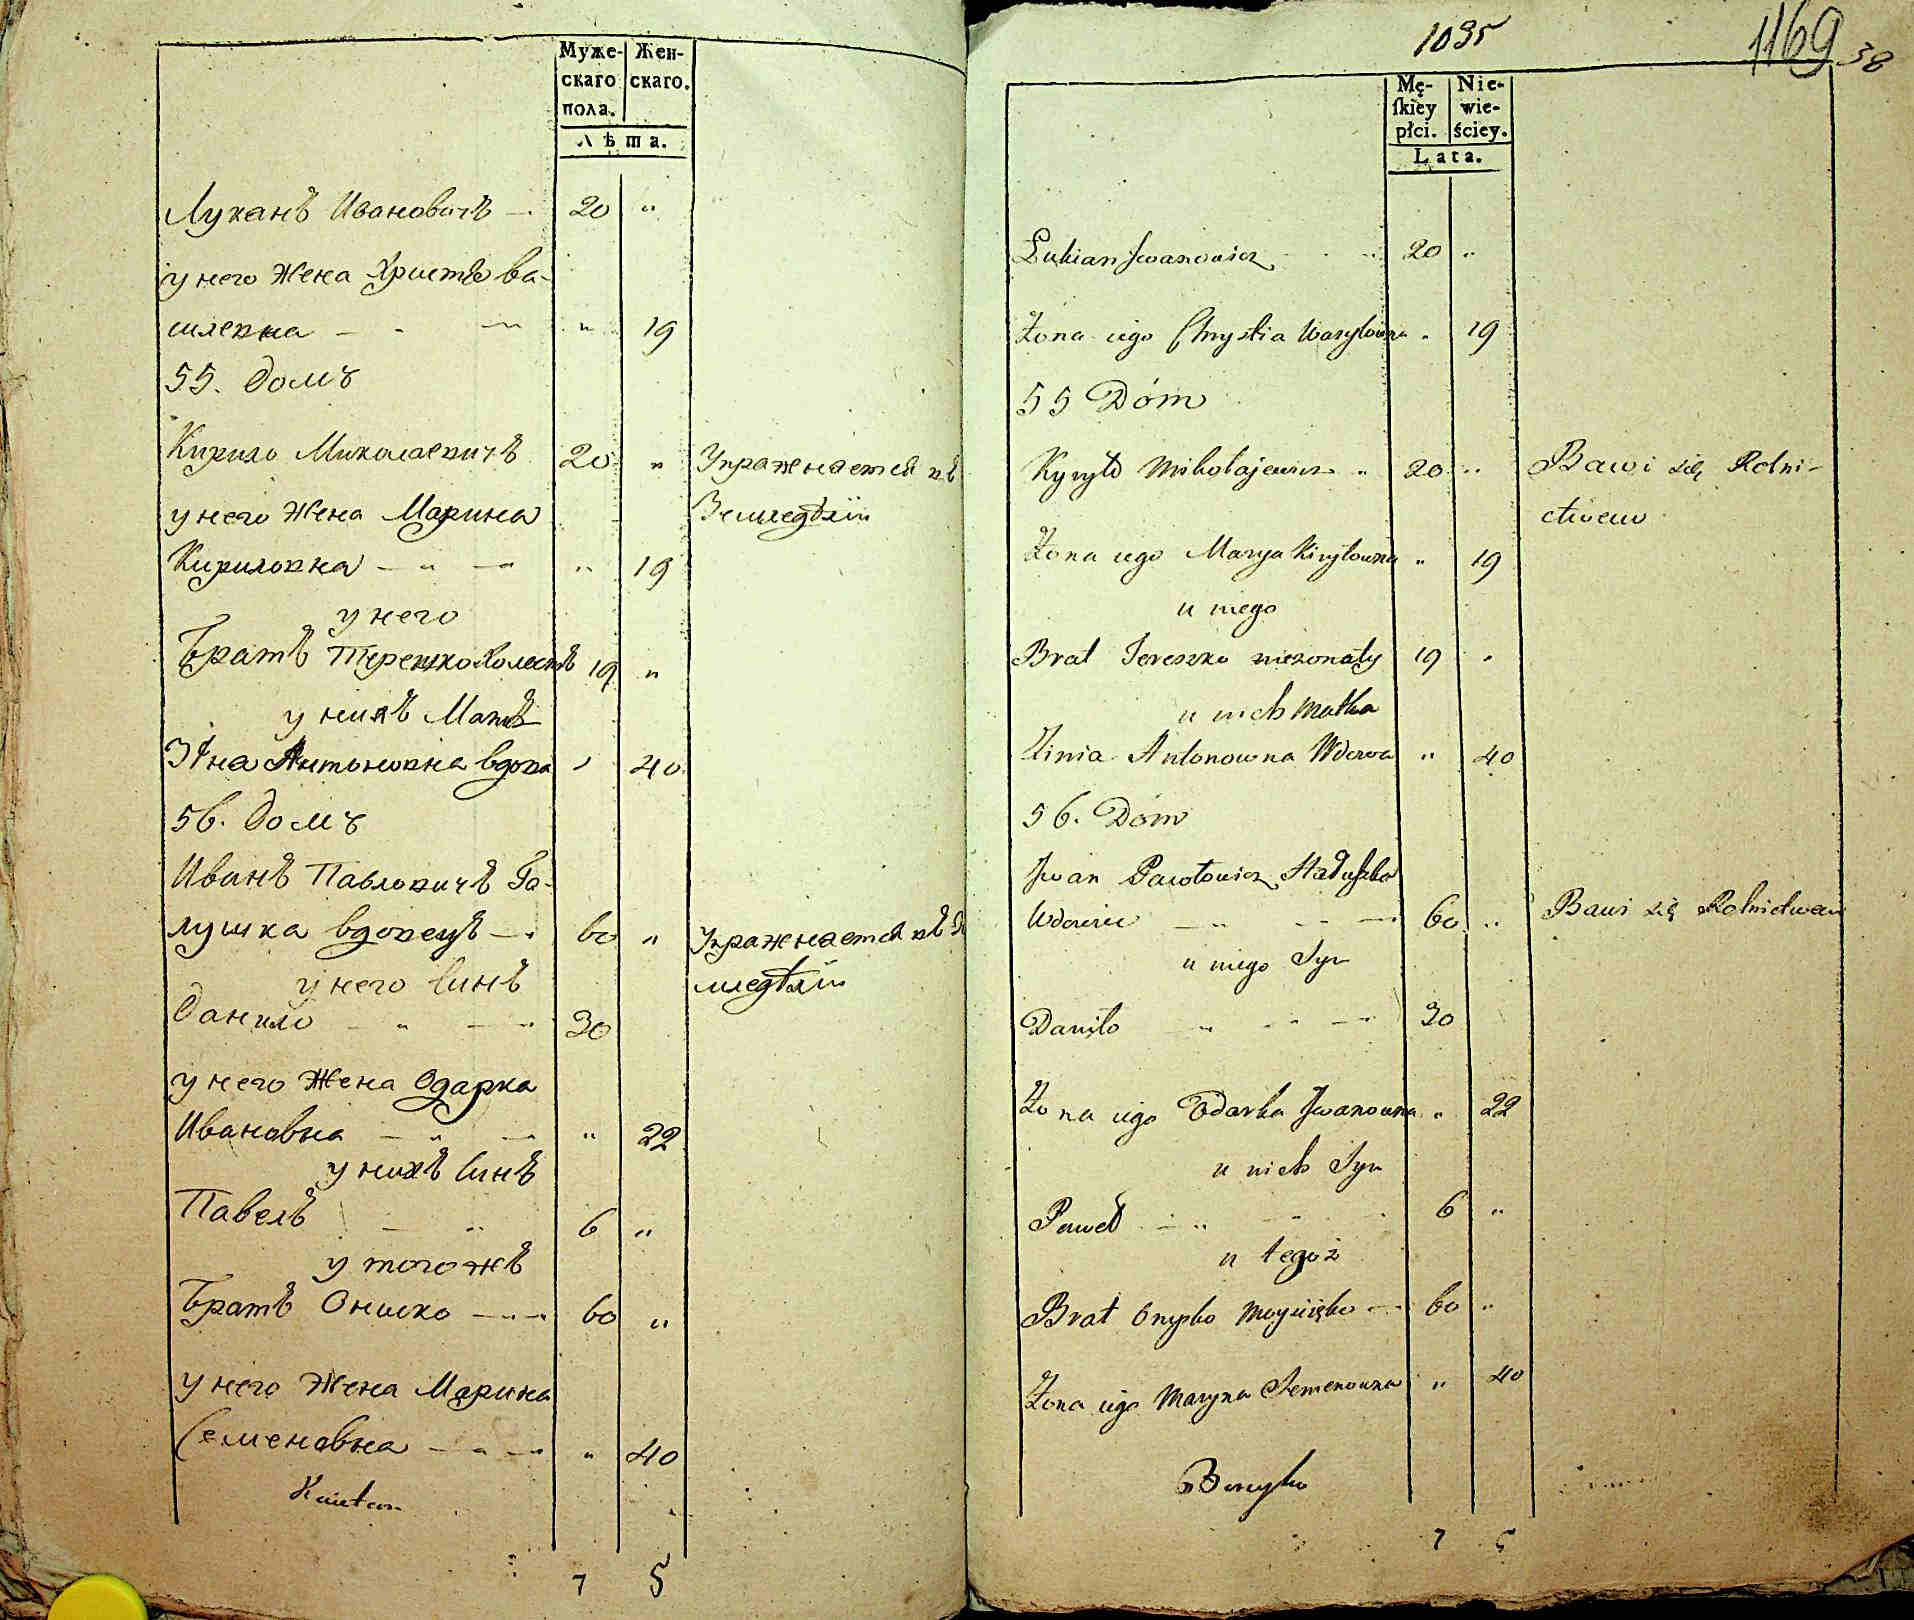 Муже- Жен-
скаго скаго.
пола.
Лѣта.
Луканъ Ивановичъ 20 "
у него Жена Христя Ва-
силевна " 19
55. Домъ
Кирило Миколаевичъ 20 " Упражняется въ
Земледѣліи
у него Жена Марина
Кириловна " 19
у него
Братъ Терешко Холостъ 19 "
у нихъ Матъ
Антоновна вдова 40
56. Домъ
Иванъ Павловичъ Га-
лушка вдовецъ 60 " Упражняется въ Зе
мледѣліи
у него Синъ
Данило 30
у него Жена Одарка
Ивановна " 22
у нихъ Синъ
Павелъ 6 "
у тогожъ
Братъ Ониско 60 "
у него Жена Марина
Семеновна " 40
7 5
1035
1169
38
Mę- Nie-
ſkiey wie-
płci. ściey.
Lata.
Łukian Iwanowicz 20 "
Żona iego Chrystia Wasylowna " 19
55 Dóm
Kyryło Mikołajewicz 20 " Bawi się Rolni-
ctwem
Żona iego Marya Kiryłowna " 19
u niego
Brat Tereszko niezonaty 19 "
u nich Matka
Antonowna Wdowa " 40
56. Dóm
Iwan Pawłowicz Hałuszka
Wdowiec 60 " Bawi się Rolnictwem
u niego Syn
Daniło 30
Żona iego Odarka Iwanowna " 22
u nich Syn
Paweł 6 "
u tegoż
Brat Onysko 60 "
Żona iego Maryna Semenowna " 40
7 5